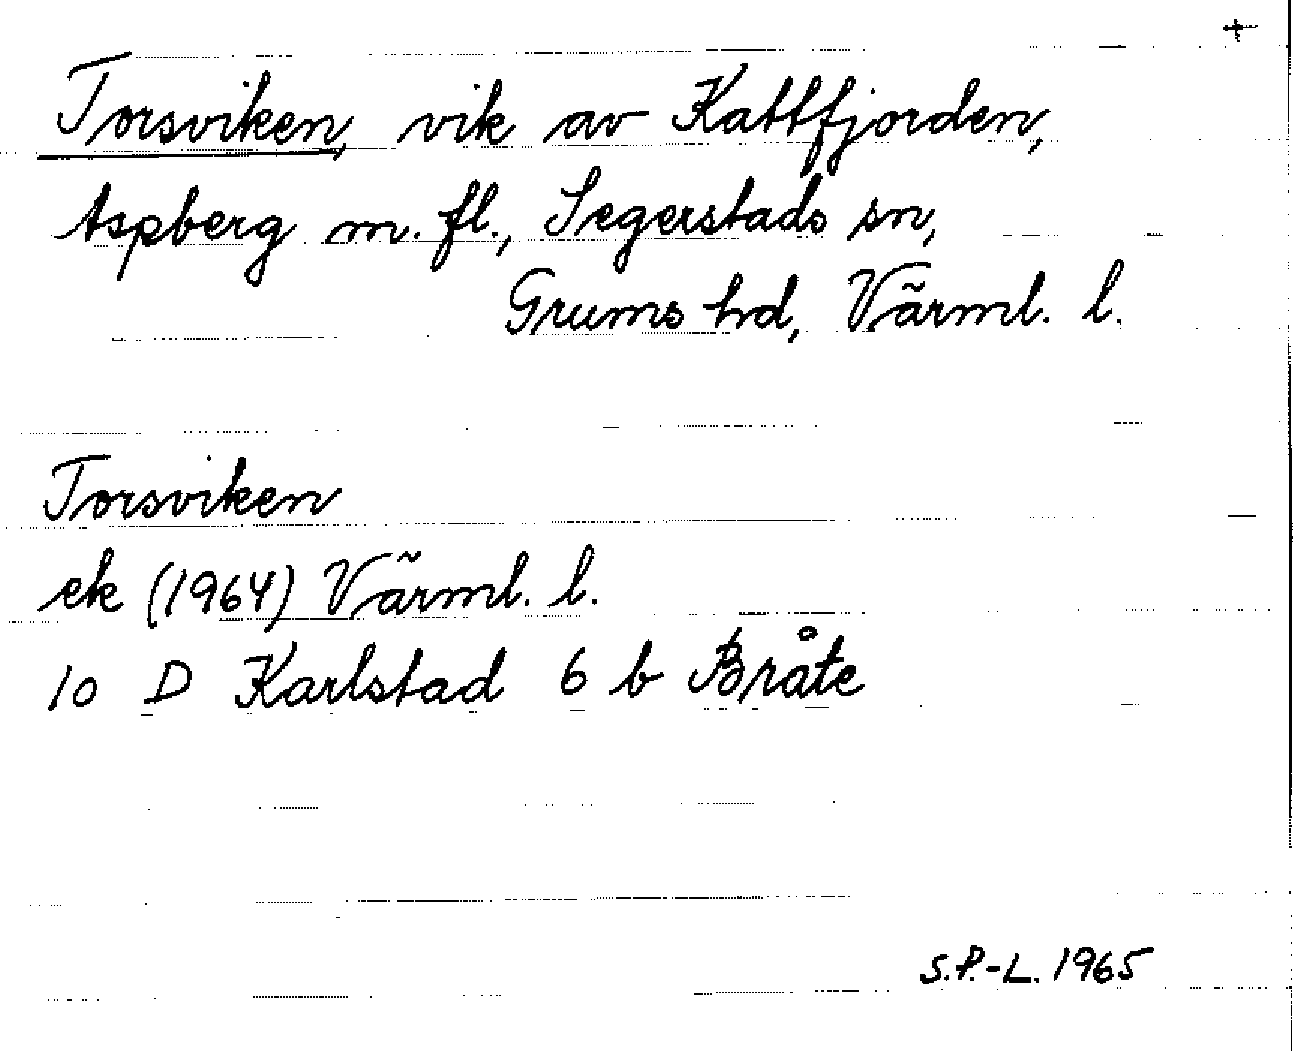 +
Torsviken, vik av Kattfjorden,
Aspberg m. fl., Segerstads sn,
Grums hd, Värml. l.
Torsviken
ek (1964) Värml. l.
10 D Karlstad 6 b Bråte
S.P.-L. 1965